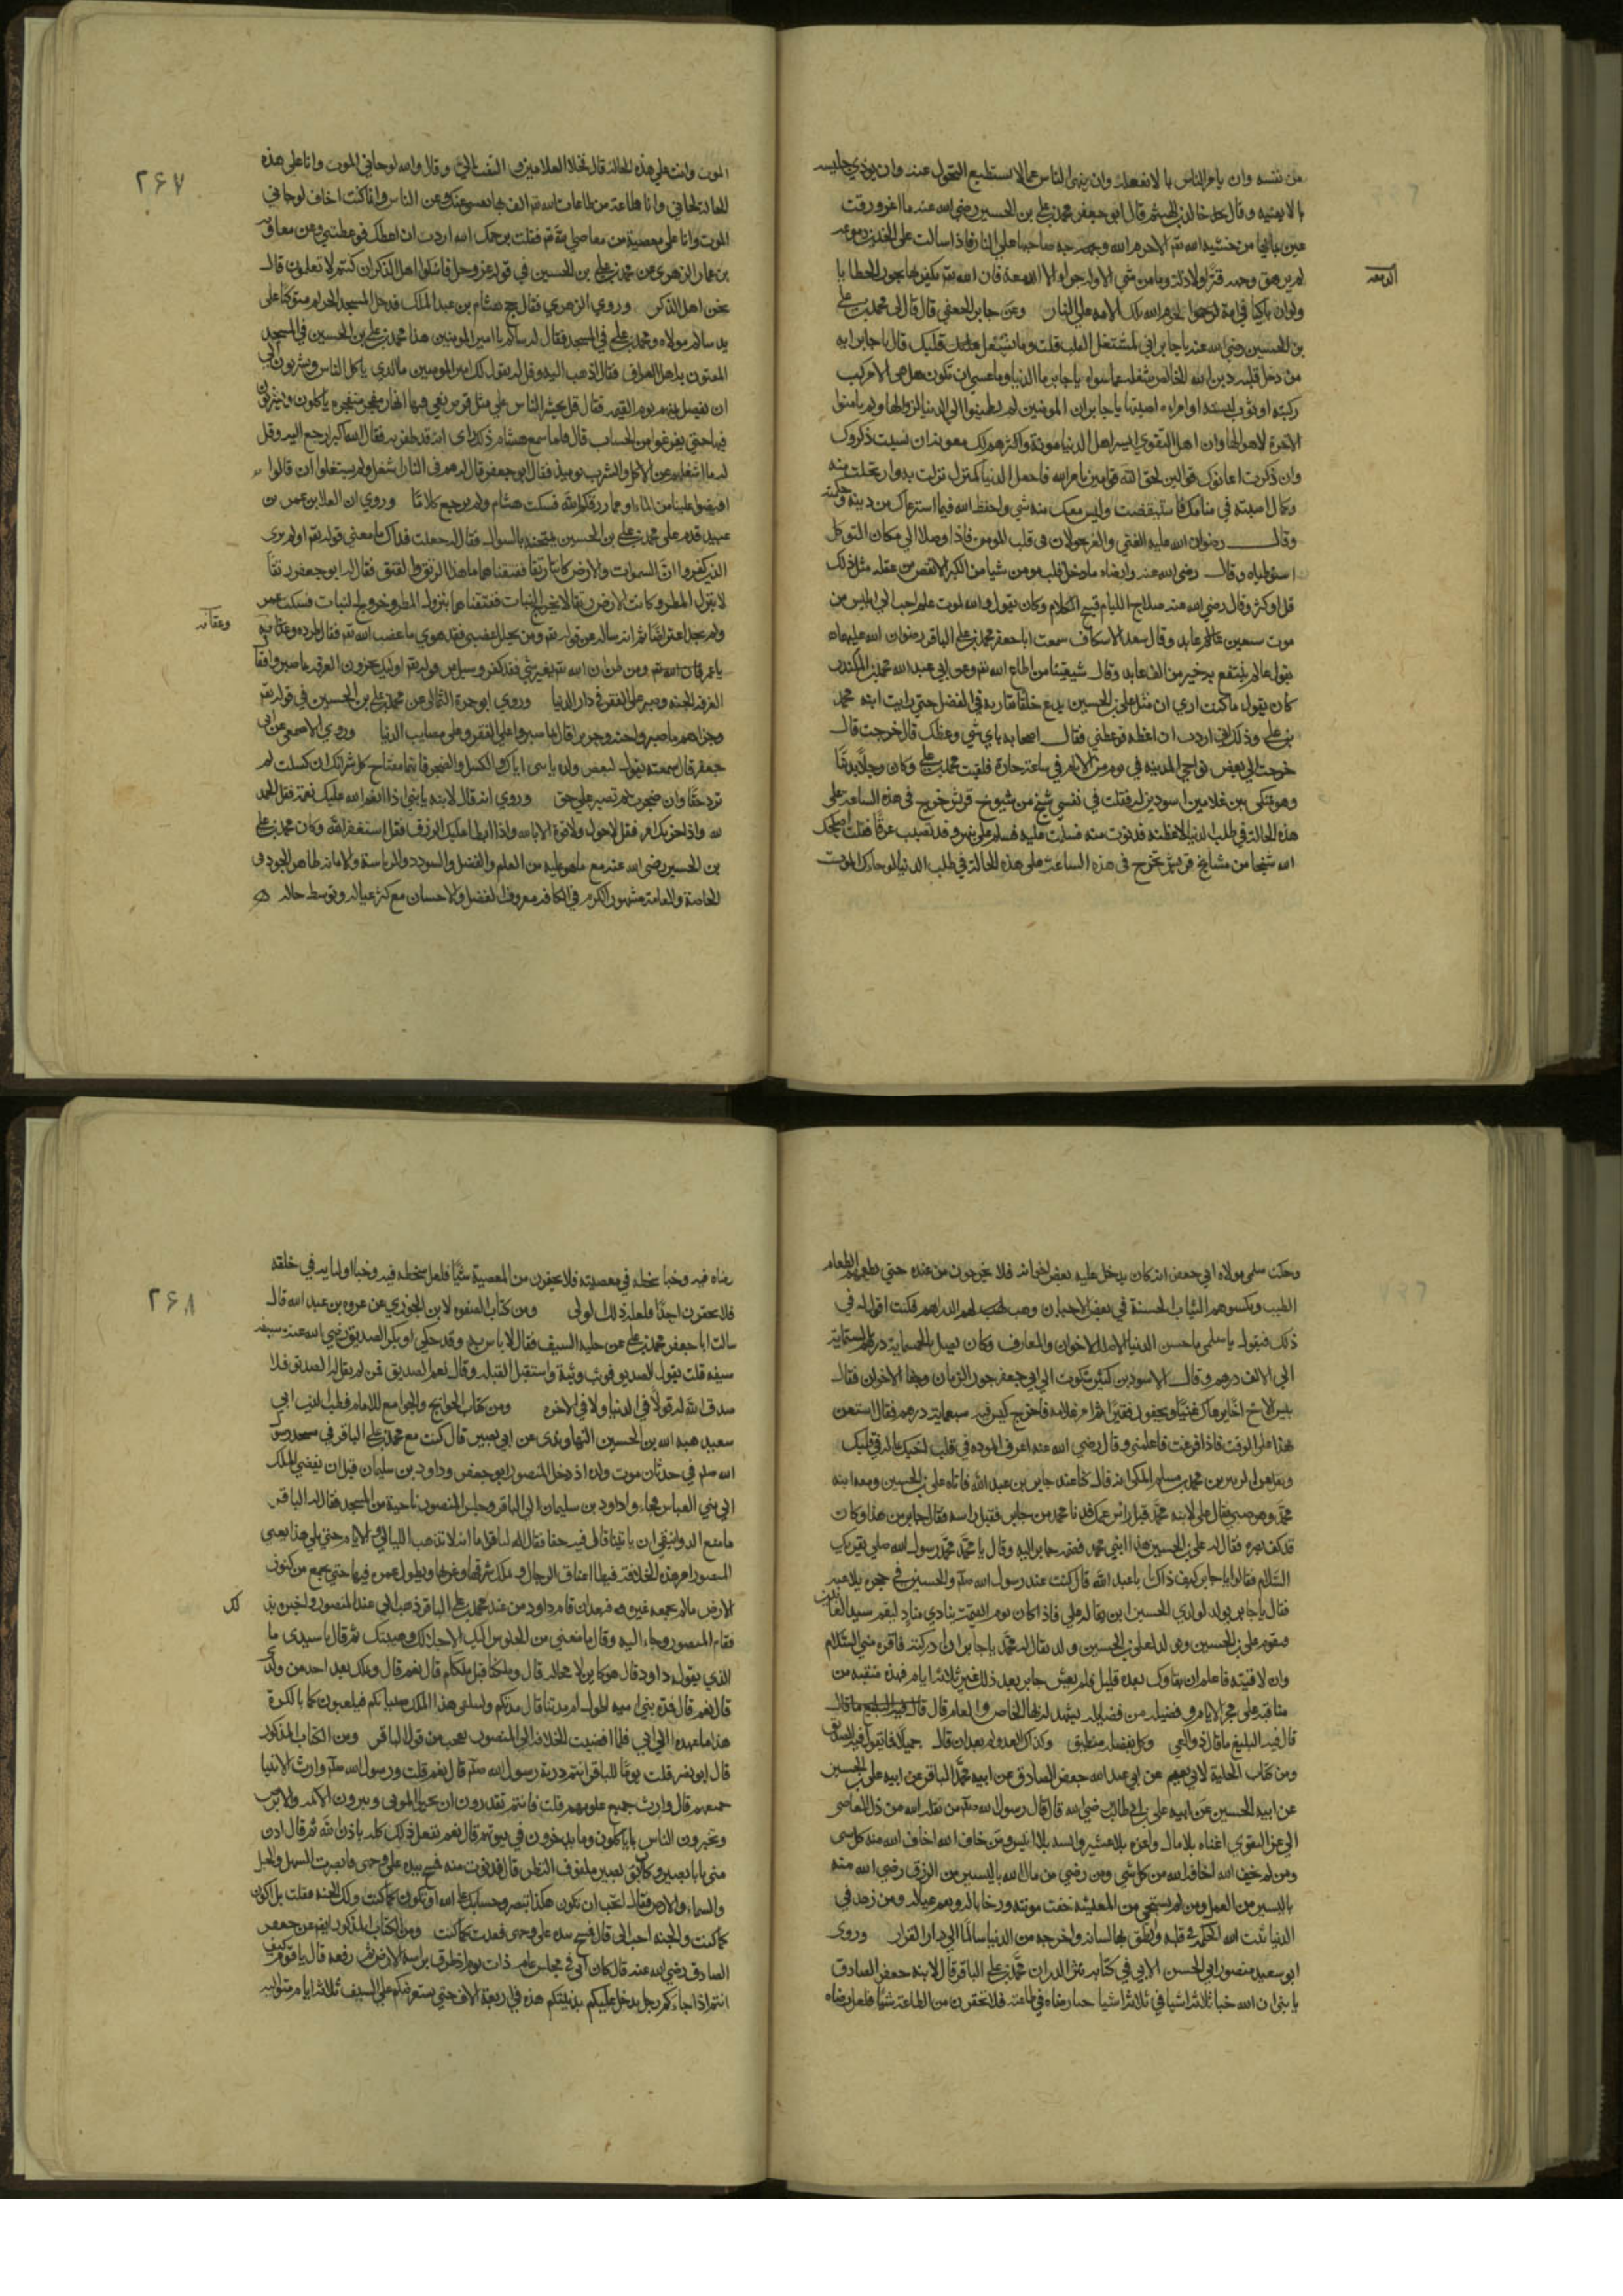 من نفسه وان يامر الناس بما لا يفعله وان ينهى الناس عما لا يستطيع التحول عنه وان يوذي جليسه
بما لا يعنيه وقال خالد بن الهيثم قال ابو جعفر محمد بن علي بن الحسين رضي الله عنه ما اغرورقت
عين بمائها من خشية الله تم الا حرم الله وجه صاحبها على النار فاذا سالت على الخدين دموعه
لم يرهق وجهه قتر ولا ذلة وما من شي الا وله جزاء الا الدمعة فان الله تم يكفر بها بحور الخطايا
الدمعه
ولو ان باكيا في امة لحرم الله تلك الامه على النار وعن جابر الجعفي قال قال لي محمد بن علي
بن الحسين رضي الله عنه يا جابر اني لمشتغل القلب قلت وما يشغل قلبك قال يا جابر انه
من دخل قلبه دين الله الخالص شغله عما سواه يا جابر ما الدنيا وما عسى ان تكون هل هي الا مركب
ركبته او ثوب لبسته او امراة اصبتها يا جابر ان المومنين لم يطمئنوا الى الدنيا لزوالها ولم يامنوا
الاخرة لاهوالها وان اهل التقوى ايسر اهل الدنيا مونة واكثرهم لك معونة ان نسيت ذكروك
وان ذكرت اعانوك قوالين لحق الله قوامين بامر الله فاجعل الدنيا كمنزل نزلت به وارتحلت منه
وكمال اصبته في منامك فاستيقضت وليس معك منه شي واحفظ الله فيما استرعاك من دينه وحكمته
وقال رضوان الله عليه الغنى والعز يجولان في قلب المومن فاذا وصلا الى مكان التوكل
استوطناه وقال رضي الله عنه وارضاه ما دخل قلب مومن شيا من الكبر الا نقص من عقله مثل ذلك
قل او كثر وقال رضي الله عنه سلاح اللئام قبيح الكلام وكان يقول والله لموت عالم احب الى ابليس من
موت سبعين عابد وقال سعد الاسكاف سمعت ابا جعفر محمد بن علي الباقر رضوان الله عليهما
يقول عالم ينتفع به خير من الف عابد وقال شيعتنا من اطاع الله تم وعن ابي عبد الله محمد بن المنكدر
كان يقول ما كنت ارى ان مثل علي بن الحسين يدع خلفا يقاربه في الفضل حتى رايت ابنه محمد
بن علي وذلك اني اردت ان اعظه فوعظني فقال اصحابه باي شي وعظك قال خرجت قال
خرجت الى بعض نواحي المدينه في يوم من الايام في ساعة حارة فلقيت محمد بن علي وكان رجلا بدنا
وهو متكي بين غلامين اسودين له فقلت في نفسي شيخ من شيوخ قريش خرج في هذه الساعة على
هذه الحالة في طلب الدنيا لاعظنه فدنوت منه فسلمت عليه فسلم علي بنهر وقد تصبب عرقا فقلت اصلحك
الله شيخا من مشايخ قريش تخرج في هذه الساعة على هذه الحالة في طلب الدنيا لو جاك الموت
٢۶٧
الموت وانت على هذه الحالة قال فخلا الغلامين والتفت الي وقال والله لو جاني الموت وانا على هذه
الحالة لجاني وانا في طاعة من طاعات الله تم اكف بها نفسي عنك وعن الناس وانما كنت اخاف لو جاني
الموت وانا على معصية من معاصي الله تم فقلت يرحمك الله اردت ان اعظك فوعظتني وعن معاوية
بن عمار الدهني عن محمد بن علي بن الحسين في قوله عز وجل فاسئلوا اهل الذكر ان كنتم لا تعلمون قال
نحن اهل الذكر وروي الزهري فقال حج هشام بن عبد الملك فدخل المسجد الحرام متوكئا على
يد سالم مولاه ومحمد بن علي في المسجد فقال له سالم يا امير المومنين هذا محمد بن علي بن الحسين في المسجد
المفتون به اهل العراق فقال اذهب اليه وقل له يقول لك امير المومنين ما الذي ياكل الناس ويشربون الى
ان يفصل بينهم يوم القيمه فقال قل يحشر الناس على مثل قرص نقي فيها انهار متفجره ياكلون ويشربون
فيها حتى يفرغوا من الحساب قال فلما سمع هشام ذلك راى انه قد ظفر به فقال الله اكبر ارجع اليه وقل
له ما اشغلهم عن الاكل والشرب يوميذ فقال ابو جعفر قال لهم في النار اشغل ولم يشتغلوا ان قالوا
افيضوا علينا من الماء او مما رزقكم الله فسكت هشام ولم يرجع كلاما وروي ان العلا بن عمر بن
عبيد قدم على محمد بن علي بن الحسين يمتحنه بالسوال فقال له جعلت فداك ما معنى قوله تم اولم ير
الذين كفروا ان السموات والارض كانتا رتقا ففتقناهما ما هذا الرتق والفتق فقال له ابو جعفر رتقا
لا ينزل المطر وكانت الارض رتقا لا يخرج النبات ففتقناهما بنزول المطر وخروج النبات فسكت عمر
وعقابه
ولم يجد اعتراضا ثم انه ساله عن قوله تم ومن يحلل عليه غضبي فقد هوى ما غضب الله تم فقال طرده وعقابه
يا عمر قال الله تم ومن ظن ان الله تم يغيره شي فقد كفر وسيل عن قوله تم اوليك يجزون الغرفة بما صبروا فقال
الغرفة الجنه وصبروا على الفقر في دار الدنيا وروي ابو حمزة الثمالي عن محمد بن علي بن الحسين في قوله تم
وجزاهم بما صبروا جنة وحريرا قال بما صبروا على الفقر وعلى مصايب الدنيا وروي الاصمعي عن ابي
جعفر قال سمعته يقول لبعض ولده يا بني اياك والكسل والضجر فانهما مفتاح كل شر انك ان كسلت لم
تؤد حقا وان ضجرت لم تصبر على حق وروي انه قال لابنه يا بني اذا انعم الله عليك نعمة فقل الحمد
لله واذا حزبك امر فقل لا حول ولا قوة الا بالله واذا ابطا عليك الرزق فقل استغفر الله وكان محمد بن علي
بن الحسين رضي الله عنه مع ما هو عليه من العلم والفضل والسودد والرياسة والامامة ظاهر الجود في
الخاصة والعامة مشهور الكرم في الكافه معروف الفضل والاحسان مع كثرة عياله وتوسط حاله
وحكت سلمى مولاة ابي جعفر انه كان يدخل عليه بعض اخوانه فلا يخرجون من عنده حتى يطعمهم الطعام
الطيب ويكسوهم الثياب الحسنة في بعض الاحيان ويهب لهم الدراهم فكنت اقول له في
ذلك فيقول يا سلمى ما حسن الدنيا الا صلة الاخوان والمعارف وكان يصل بالخمسماية درهم والستماية
الى الالف درهم وقال الاسود بن كثير شكوت الى ابي جعفر جور الزمان وجفا الاخوان فقال
بئس الاخ اخا يرعاك غنيا ويجفوك فقيرا ثم امر غلامه فاخرج كيس فيه سبعماية درهم فقال استعن
بهذا على الوقت فاذا فرغت فاعلمني وقال رضي الله عنه اعرف الموده في قلب اخيك بماله في قلبك
ونقل عن الزبير بن محمد بن مسلم المكي انه قال كنا عند جابر بن عبد الله فاتاه علي بن الحسين ومعه ابنه
محمد وهو صبي فقال علي لابنه محمد قبل راس عمك فدنا محمد من جابر فقبل راسه فقال جابر من هذا وكان
قد كف بصره فقال له علي بن الحسين هذا ابني محمد فضمه جابر اليه وقال يا محمد محمد رسول الله صلى يقريك
السلام فقالوا يا جابر كيف ذاك يا با عبد الله قال كنت عند رسول الله صلم والحسين في حجره يلاعبه
فقال يا جابر يولد لولدي الحسين ابن يقال له علي فاذا كان يوم القيمة ينادي مناد ليقم سيد العابدين
فيقوم علي بن الحسين ويولد لعلي بن الحسين ولد يقال له محمد يا جابر ان ادركته فاقره مني السلام
وان لاقيته فاعلم ان بقاوك بعده قليل فلم يعش جابر بعد ذلك غير ثلاثة ايام فهذه منقبه من
مناقبه على مجر الايام وفضيله من فضايله يشهد له بها الخاص والعام قال
قال فيه البليغ ما قال ذو العي وكل بفضله منطيق وكذاك العدو لم يعد ان قال جميلا كما يقول فيه الصديق
ومن كتاب الحلية لابي نعيم عن ابي عبد الله جعفر الصادق عن ابيه محمد الباقر عن ابيه علي بن الحسين
عن ابيه الحسين عن ابيه علي بن ابي طالب رضي الله قال قال رسول الله صلم من نقله الله من ذل المعاصي
الى عز التقوى اغناه بلا مال واعزه بلا عشيره وانسه بلا انيس ومن خاف الله اخاف الله منه كل شي
ومن لم يخف الله اخافه الله من كل شي ومن رضي من الله باليسير من الرزق رضي الله منه
باليسير من العمل ومن لم يستحي من المعيشه خفت مونته ورخا باله ونعم عياله ومن زهد في
الدنيا ثبت الله الحكمة في قلبه وانطق بها لسانه واخرجه من الدنيا سالما الى دار القرار وروى
ابو سعيد منصور ابي الحسن الابي في كتابه نثر الدر ان محمد بن علي الباقر قال لابنه جعفر الصادق
يا بني ان الله خبا ثلاثة اشيا في ثلاثة اشيا خبا رضاه في طاعته فلا تحقرن من الطاعة شيا فلعل رضاه
٢۶٨
رضاه فيه وخبا سخطه في معصيته فلا تحقرن من المعصية شيا فلعل سخطه فيه وخبا اوليايه في خلقه
فلا تحقرن احدا فلعله ذلك الولي ومن كتاب الصفوه لابن الجوزي عن عروه بن عبد الله قال
سالت ابا جعفر محمد بن علي عن حلية السيف فقال لا باس به وقد حلى ابو بكر الصديق رضي الله عنه سيفه
سيفه قلت تقول الصديق فوثب وثبة واستقبل القبله وقال نعم الصديق فمن لم يقل له الصديق فلا
صدق الله له قولا في الدنيا ولا في الاخره ومن كتاب الخرايج والجرايح للامام قطب الدين ابي
سعيد هبه الله بن الحسين الراوندي عن ابي بصير قال كنت مع محمد بن علي الباقر في مسجد رسول
الله صلم في حدثان موت ولده اذ دخل المنصور ابو جعفر وداود بن سليمان قبل ان يفضي الملك
الى بني العباس فجاء داود بن سليمان الى الباقر وجلس المنصور ناحية من المسجد فقال له الباقر
ما منع الدوانيقي ان ياتينا قال فيه جفا فقال اما انه لا تذهب الليالي والايام حتى يلي هذا يعني
المنصور امر هذه الخلافة فيطا اعناق الرجال ويملك شرقها وغربها ويطول عمره فيها حتى يجمع من كنوز
الارض ما لم يجمعه غيره فقام داود من عند محمد بن علي الباقر فذهب الى عند المنصور واخبره بذلك
لك
فقام المنصور وجاء اليه وقال ما منعني من الجلوس اليك الا اجلالك وهيبتك ثم قال يا سيدي ما
الذي يقول داود قال هو كاين لا محاله قال وملكنا قبل ملككم قال نعم قال ويملك بعدي احد من ولدي
قال نعم قال فمدة بني اميه اطول ام مدتنا قال مدتكم وليلعبن بهذا الملك صبيانكم فيلعبون كما بالكرة
هذا ما عهده الي ابي فلما افضيت الخلافة الى المنصور تعجب من قول الباقر ومن الكتاب المذكور
قال ابو بصير قلت يوما للباقر انتم ذرية رسول الله صلم قال نعم قلت ورسول الله صلم وارث الانبيا
جميعهم قال وارث جميع علومهم قلت فانتم تقدرون ان تحيوا الموتى وتبرون الاكمه والابرص
وتخبرون الناس بما ياكلون وما يدخرون في بيوتهم قال نعم نفعل ذلك كله باذن الله ثم قال ادن
مني يا با بصير وكان ابو بصير مكفوف النظر قال فدنوت منه فمسح بيده على وجهي فابصرت السهل والجبل
والسماء والارض فقال اتحب ان تكون هكذا تبصر وحسابك على الله او تكون كما كنت ولك الجنه فقلت بل اكون
كما كنت والجنه احب الي قال فمسح بيده على وجهي فعدت كما كنت ومن الكتاب المذكور ايضا عن جعفر
الصادق رضي الله عنه قال كان ابي في مجلس عام ذات يوم اذ اطرق براسه الى الارض ثم رفعه قال يا قوم كيف
انتم اذا جاءكم رجل يدخل عليكم مدينتكم هذه في اربعة الاف حتى يستعرضكم على السيف ثلاثة ايام متواليه